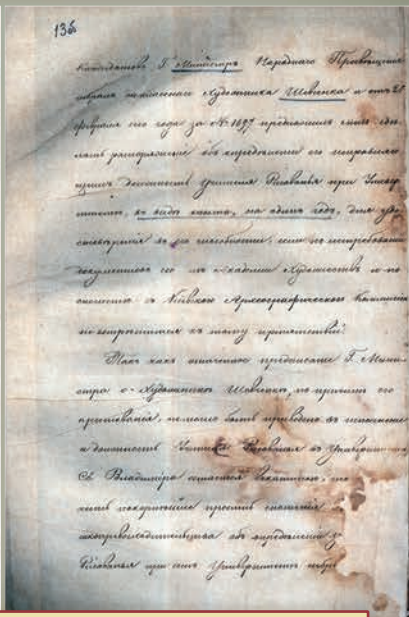 135
кандидатовъ Г. Министръ Народнаго Просвѣщенія
избралъ класснаго художника Шевченка и отъ 21
февраля сего года за № 1697 предложилъ мнѣ сдѣ-
лать распоряженіе объ опредѣленіи его исправляю-
щимъ должность учителя Рисованія при Универ-
ситетѣ, въ видѣ опыта, на одинъ годъ, для удо-
стовѣренія въ его способности, если по истребованіи
документовъ его изъ Академіи Художествъ и по
сношенію съ Кіевскою Археографическою Коммиссіею
не встрѣтится къ тому препятствій.
Такъ какъ означенное предписаніе Г. Мини-
стра о художникѣ Шевченкѣ, по причинѣ его
арестованія, не могло быть приведено въ исполненіе
а должность Учителя Рисованія въ Университетѣ
Св. Владиміра остается вакантною, то
покорнѣйше просить
объ опредѣленіи
Рисованія при семъ Университетѣ